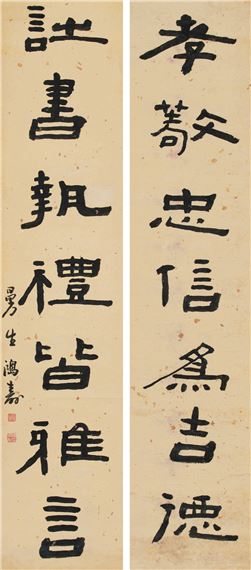 孝敬忠信爲吉德
詩書執禮皆雅言
曼生鴻壽